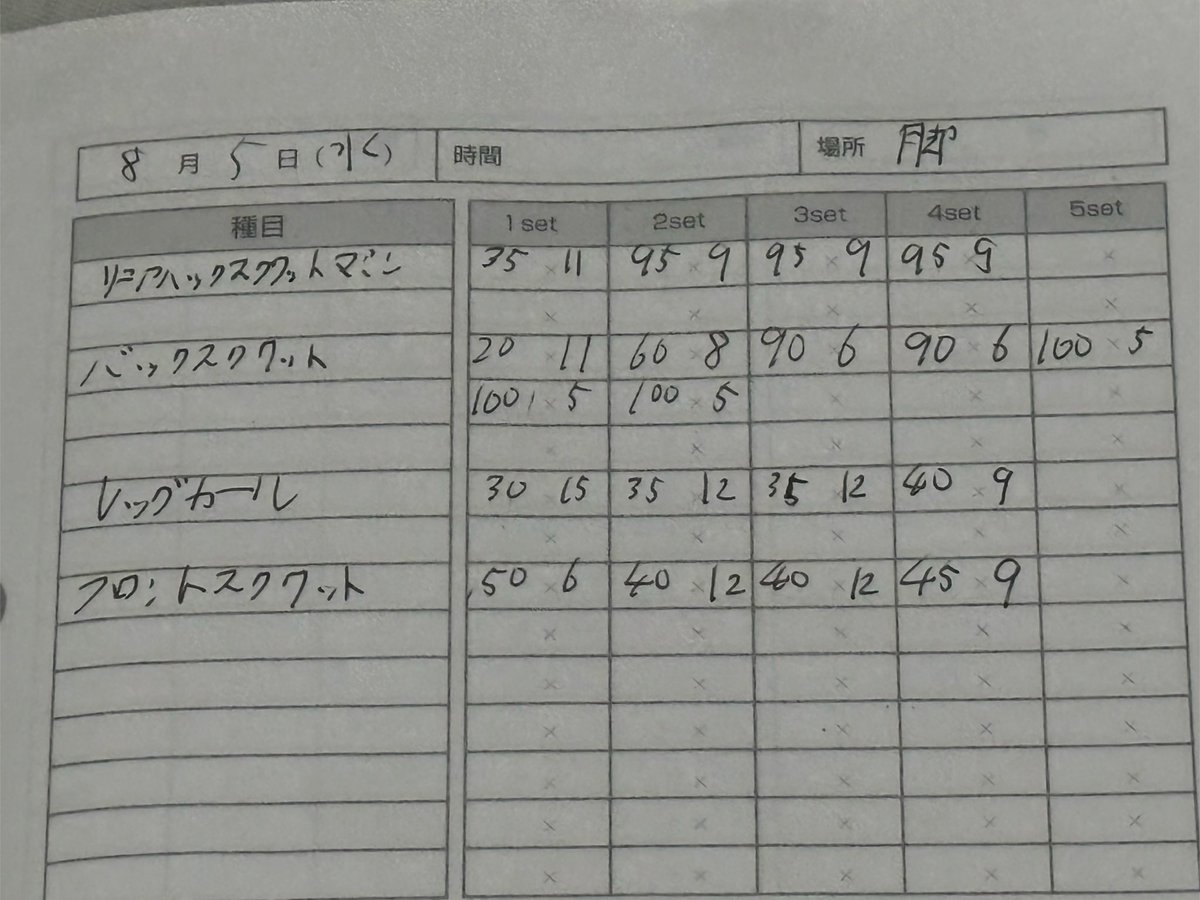 8月5日(水) 時間 場所 脚
種目 1set 2set 3set 4set 5set
リニアハックスクワットマシン 35×11 95×9 95×9 95×9 ×
× × × × ×
バックスクワット 20×11 60×8 90×6 90×6 100×5
100×5 100×5 × × ×
× × × × ×
レッグカール 30×15 35×12 35×12 40×9 ×
× × × × ×
フロントスクワット 50×6 40×12 40×12 45×9 ×
× × × × ×
× × × × ×
× × × × ×
× × × × ×
× × × × ×
× × × × ×